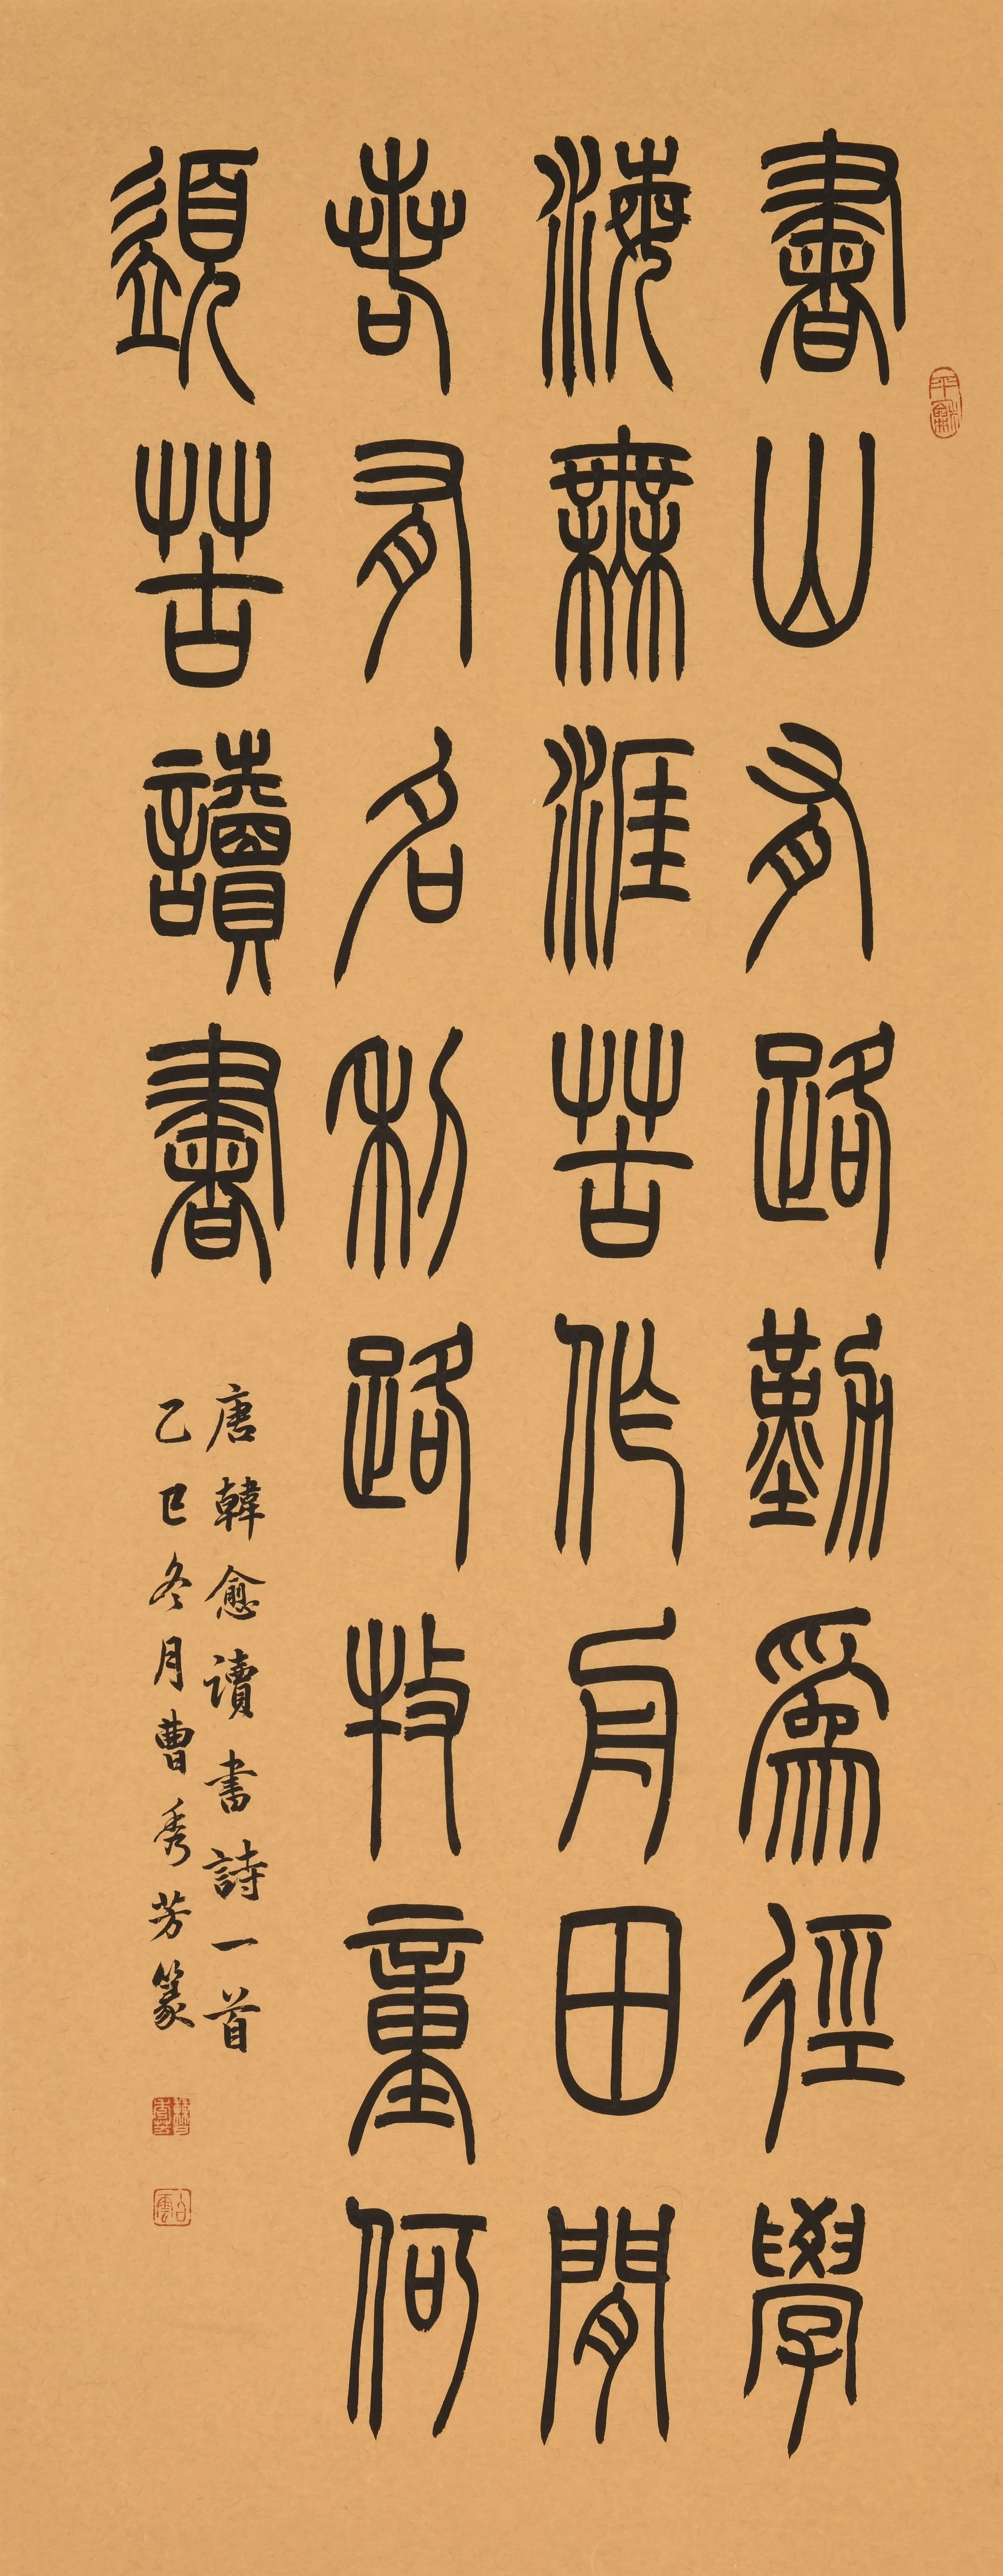 書山有路勤爲徑學
海無涯苦作舟田閒
若有名利路牧童何
須苦讀書
唐韓愈讀書詩一首
乙巳冬月曹秀芳篆
平龢